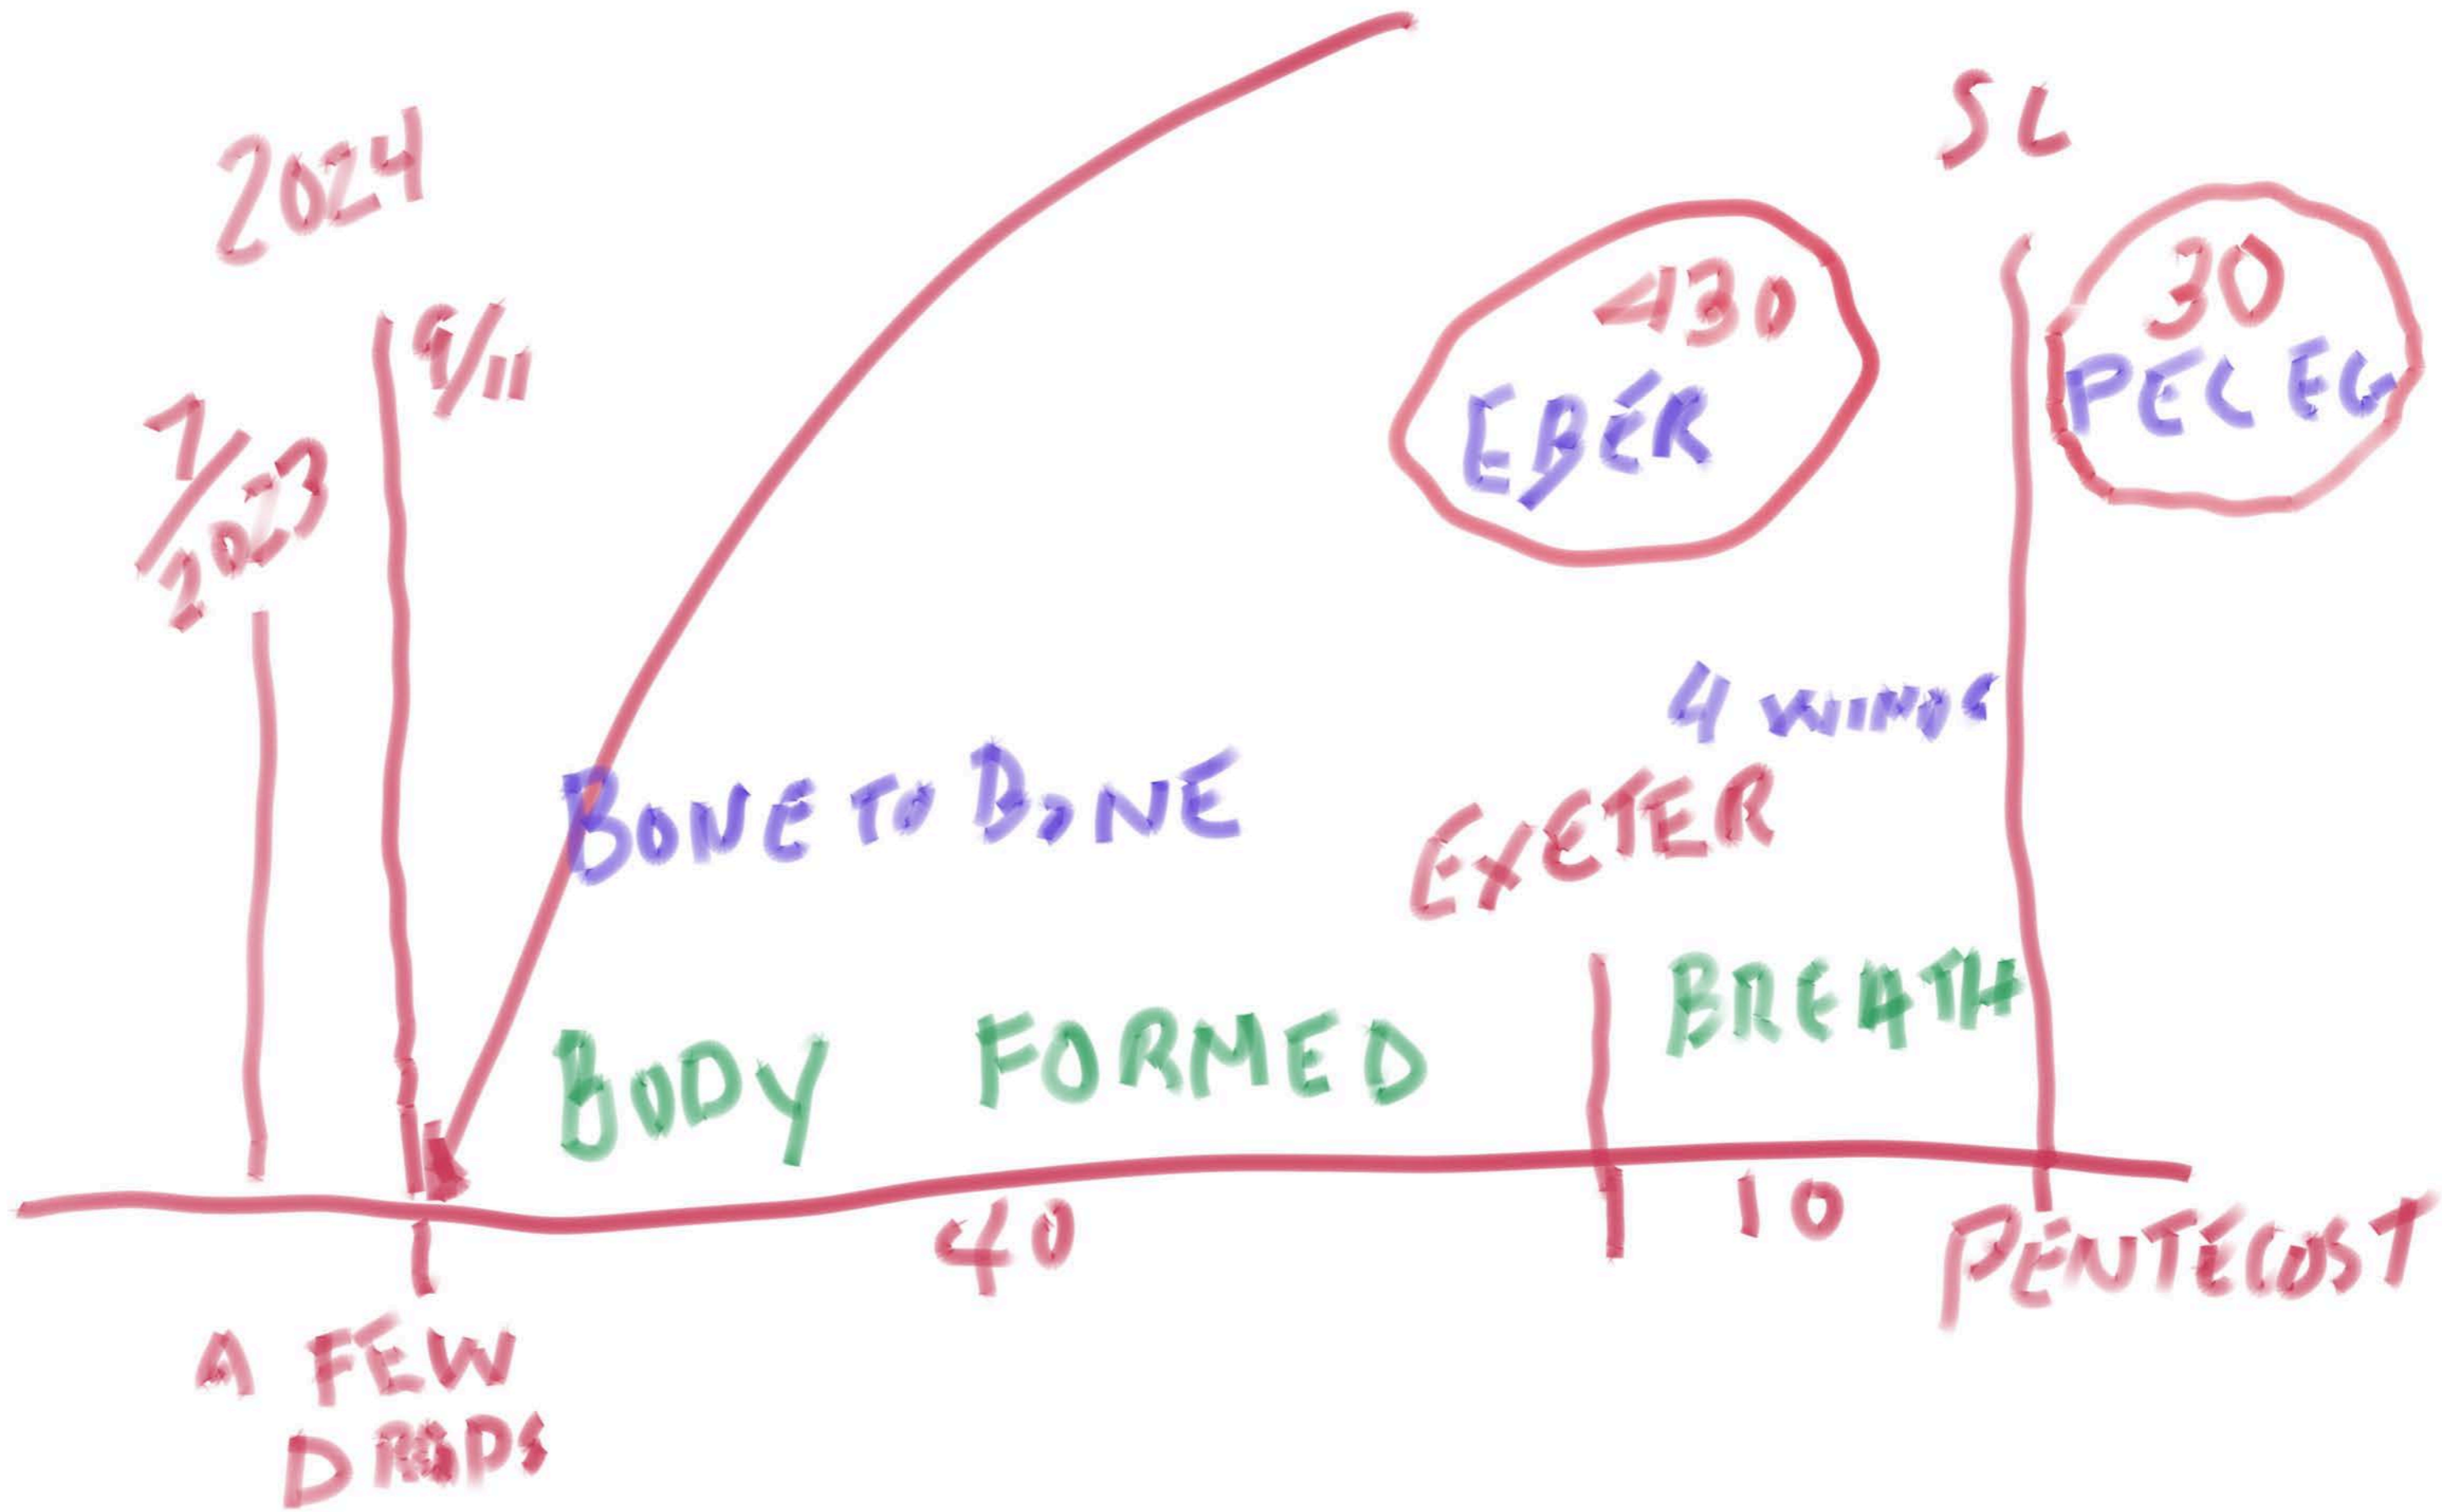 2024
SL
9/11
430
30
EBER
PELEG
7/2023
4 WINDS
BONE TO BONE
EXETER
BODY FORMED
BREATH
40
10
PENTECOST
A FEW
DROPS